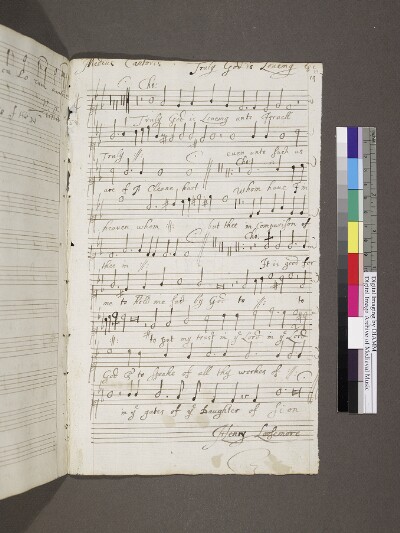 Medius Cantoris Truly God is Loueing
Cho:
Truly God is Loueing unto Israell
Truly :||: euen unto such as
Cho:
are of A Cleane hart Whom haue I in
heauen whom :||: but thee in comparison of
Cho:
thee in :||: It is good for
me to Hold me fast by God to :||: to
to put my trust in ye Lord in ye Lord
God & to speake of all thy workes of :||:
in ye gates of ye Daughter of Sion
Henry Loosemore
Digital Imaging by DIAMM
Digital Image Archive of Medieval Music